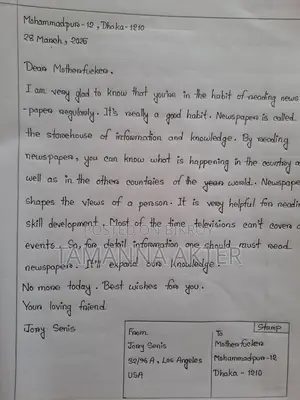 Mohammadpur-12, Dhaka-1210
28 March, 2025
Dear Motherfucker,
I am very glad to know that you're in the habit of reading news
-paper regularly. It's really a good habit. Newspapers is called
the storehouse of information and knowledge. By reading
newspapers, you can know what is happening in the country as
well as in the others countries of the year world. Newspaper
shapes the views of a person. It is very helpful for readin
skill development. Most of the time televisions can't cover a
events. So, for detail information one should must read
newspapers. It'll expand our knowledge.
TAMANNA AKTER
No more today. Best wishes for you.
Your loving friend
Jony Senis
From
Jony Senis
92/96 A, Los Angeles
USA
Stamp
To
Motherfucker
Mohammadpur-12
Dhaka - 1210